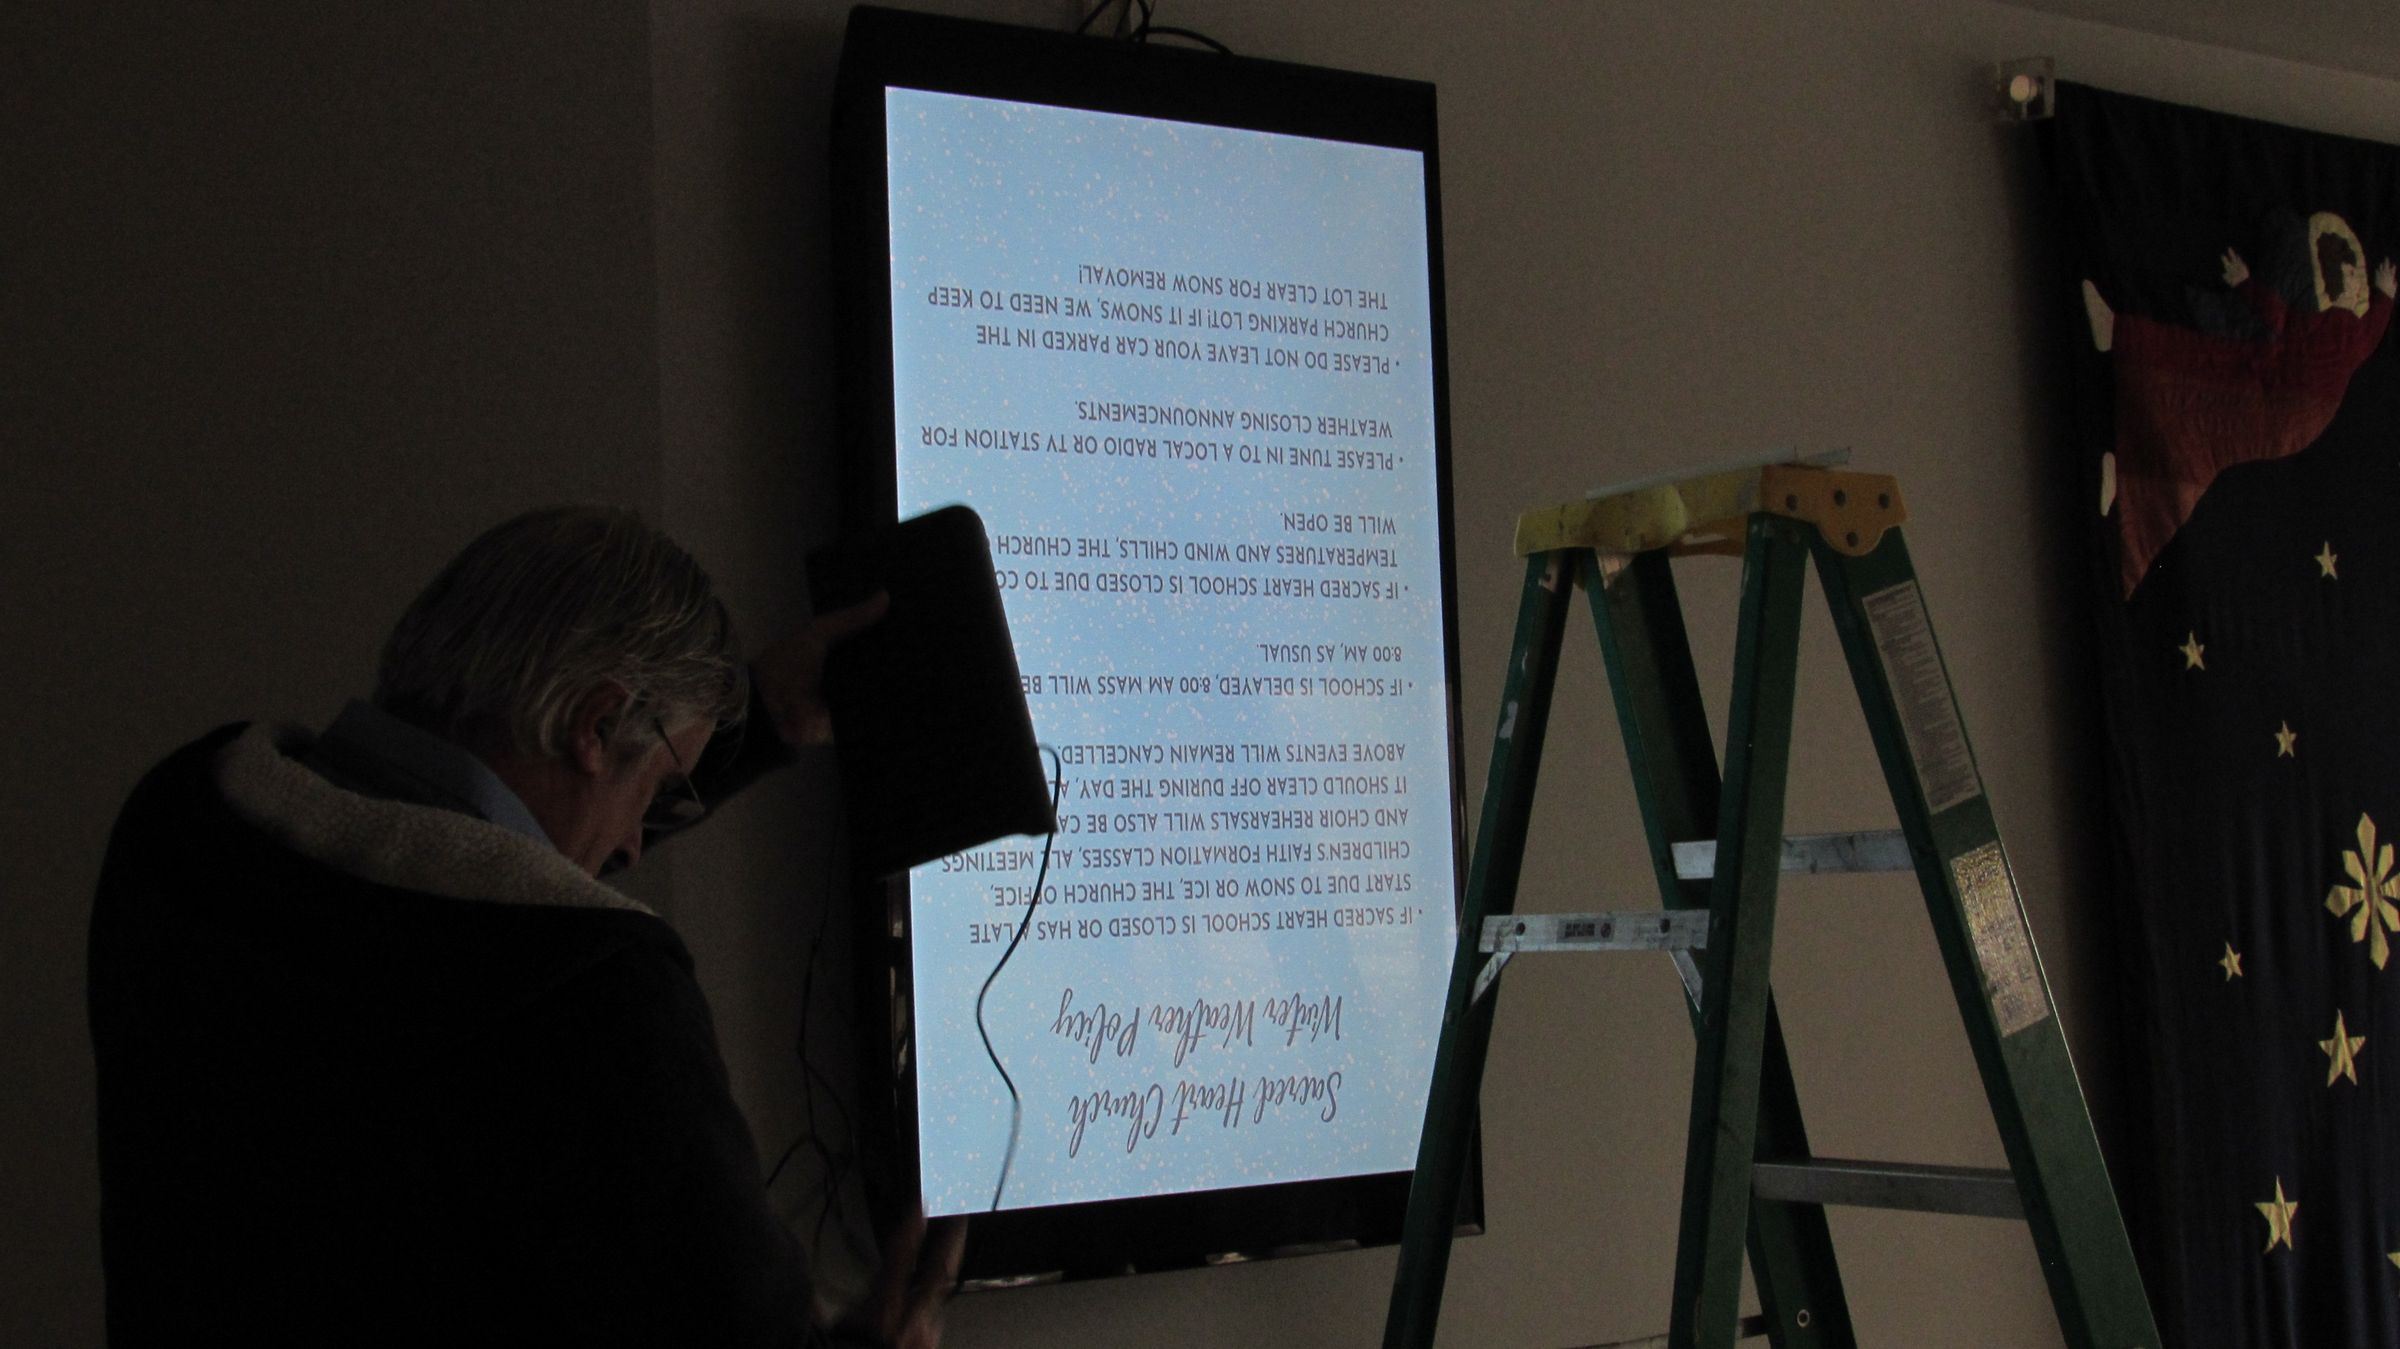 Sacred Heart Church
Winter Weather Policy
• IF SACRED HEART SCHOOL IS CLOSED OR HAS A LATE
START DUE TO SNOW OR ICE, THE CHURCH OFFICE,
CHILDREN'S FAITH FORMATION CLASSES, ALL MEETINGS
AND CHOIR REHEARSALS WILL ALSO BE CA
IT SHOULD CLEAR OFF DURING THE DAY, A
ABOVE EVENTS WILL REMAIN CANCELLED.
• IF SCHOOL IS DELAYED, 8:00 AM MASS WILL BE
8:00 AM, AS USUAL.
• IF SACRED HEART SCHOOL IS CLOSED DUE TO CO
TEMPERATURES AND WIND CHILLS, THE CHURCH
WILL BE OPEN.
• PLEASE TUNE IN TO A LOCAL RADIO OR TV STATION FOR
WEATHER CLOSING ANNOUNCEMENTS.
• PLEASE DO NOT LEAVE YOUR CAR PARKED IN THE
CHURCH PARKING LOT! IF IT SNOWS, WE NEED TO KEEP
THE LOT CLEAR FOR SNOW REMOVAL!